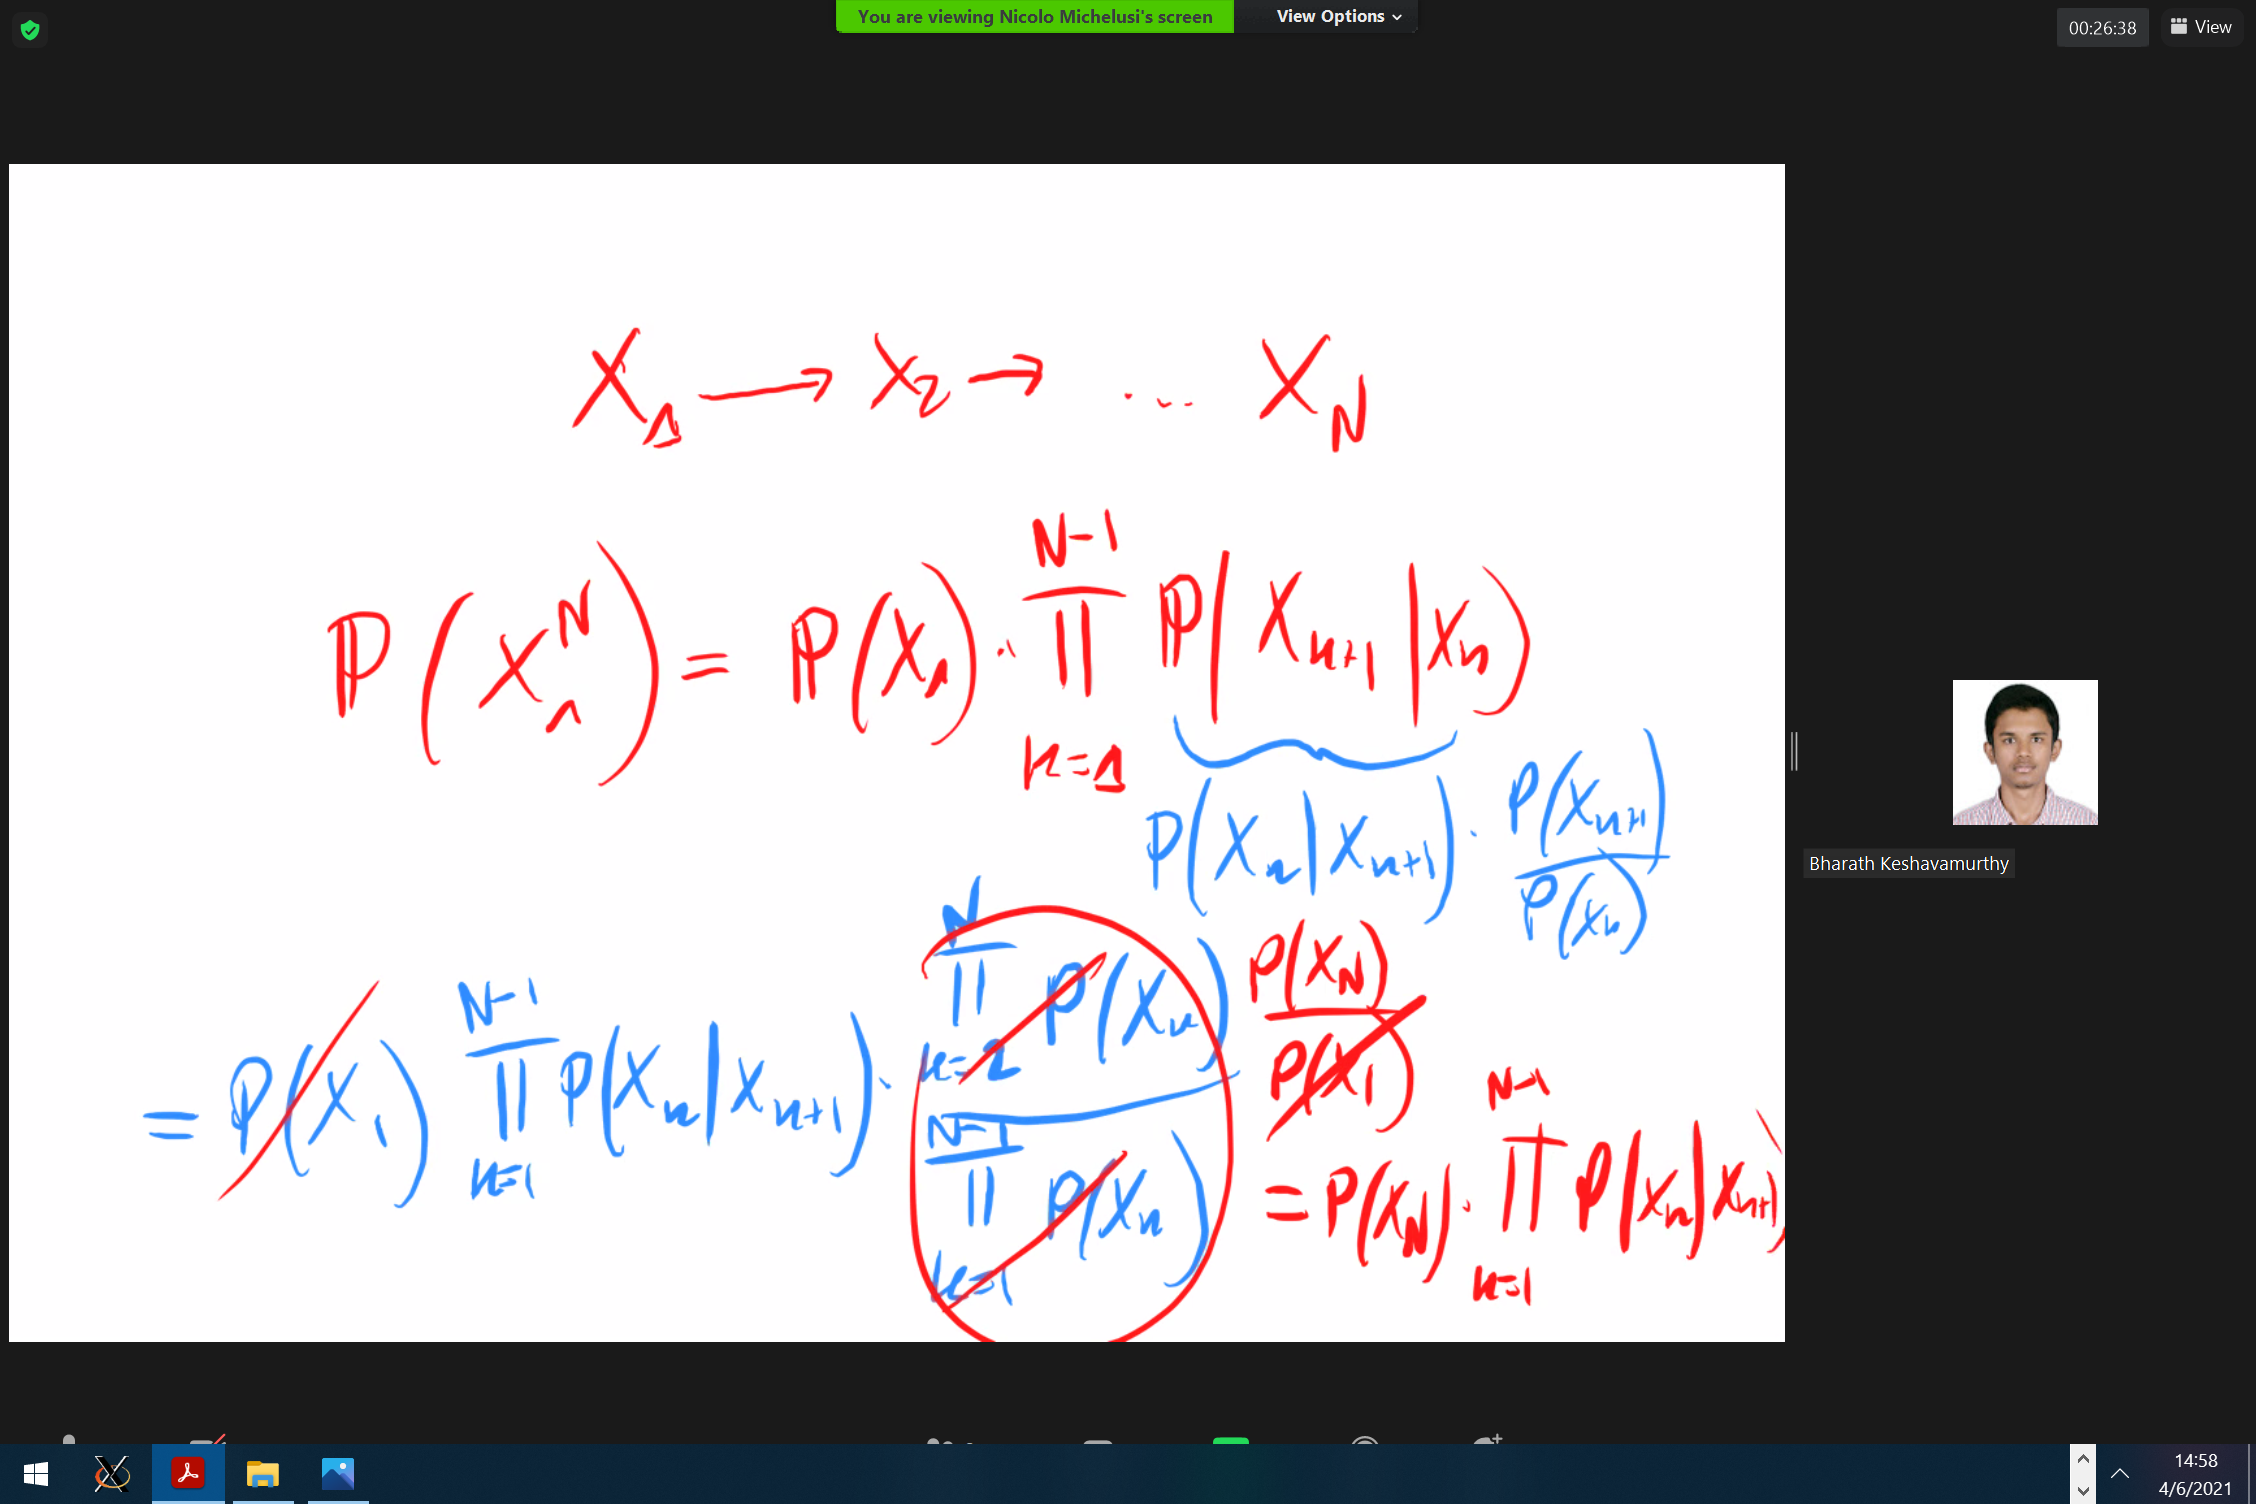 You are viewing Nicolo Michelusi's screen View Options
00:26:38 View
X₁ → X₂ → ... X_N
ℙ(X₁^N) = ℙ(X₁) · ∏_{n=1}^{N-1} ℙ(X_{n+1}|X_n)
P(X_n|X_{n+1}) · P(X_{n+1})/P(X_n)
= P(X₁) ∏_{n=1}^{N-1} P(X_n|X_{n+1}) · ∏_{n=2}^{N} P(X_n) / ∏_{n=1}^{N-1} P(X_n) P(X_N)/P(X₁)
= P(X_N) · ∏_{n=1}^{N-1} P(X_n|X_{n+1})
Bharath Keshavamurthy
14:58
4/6/2021